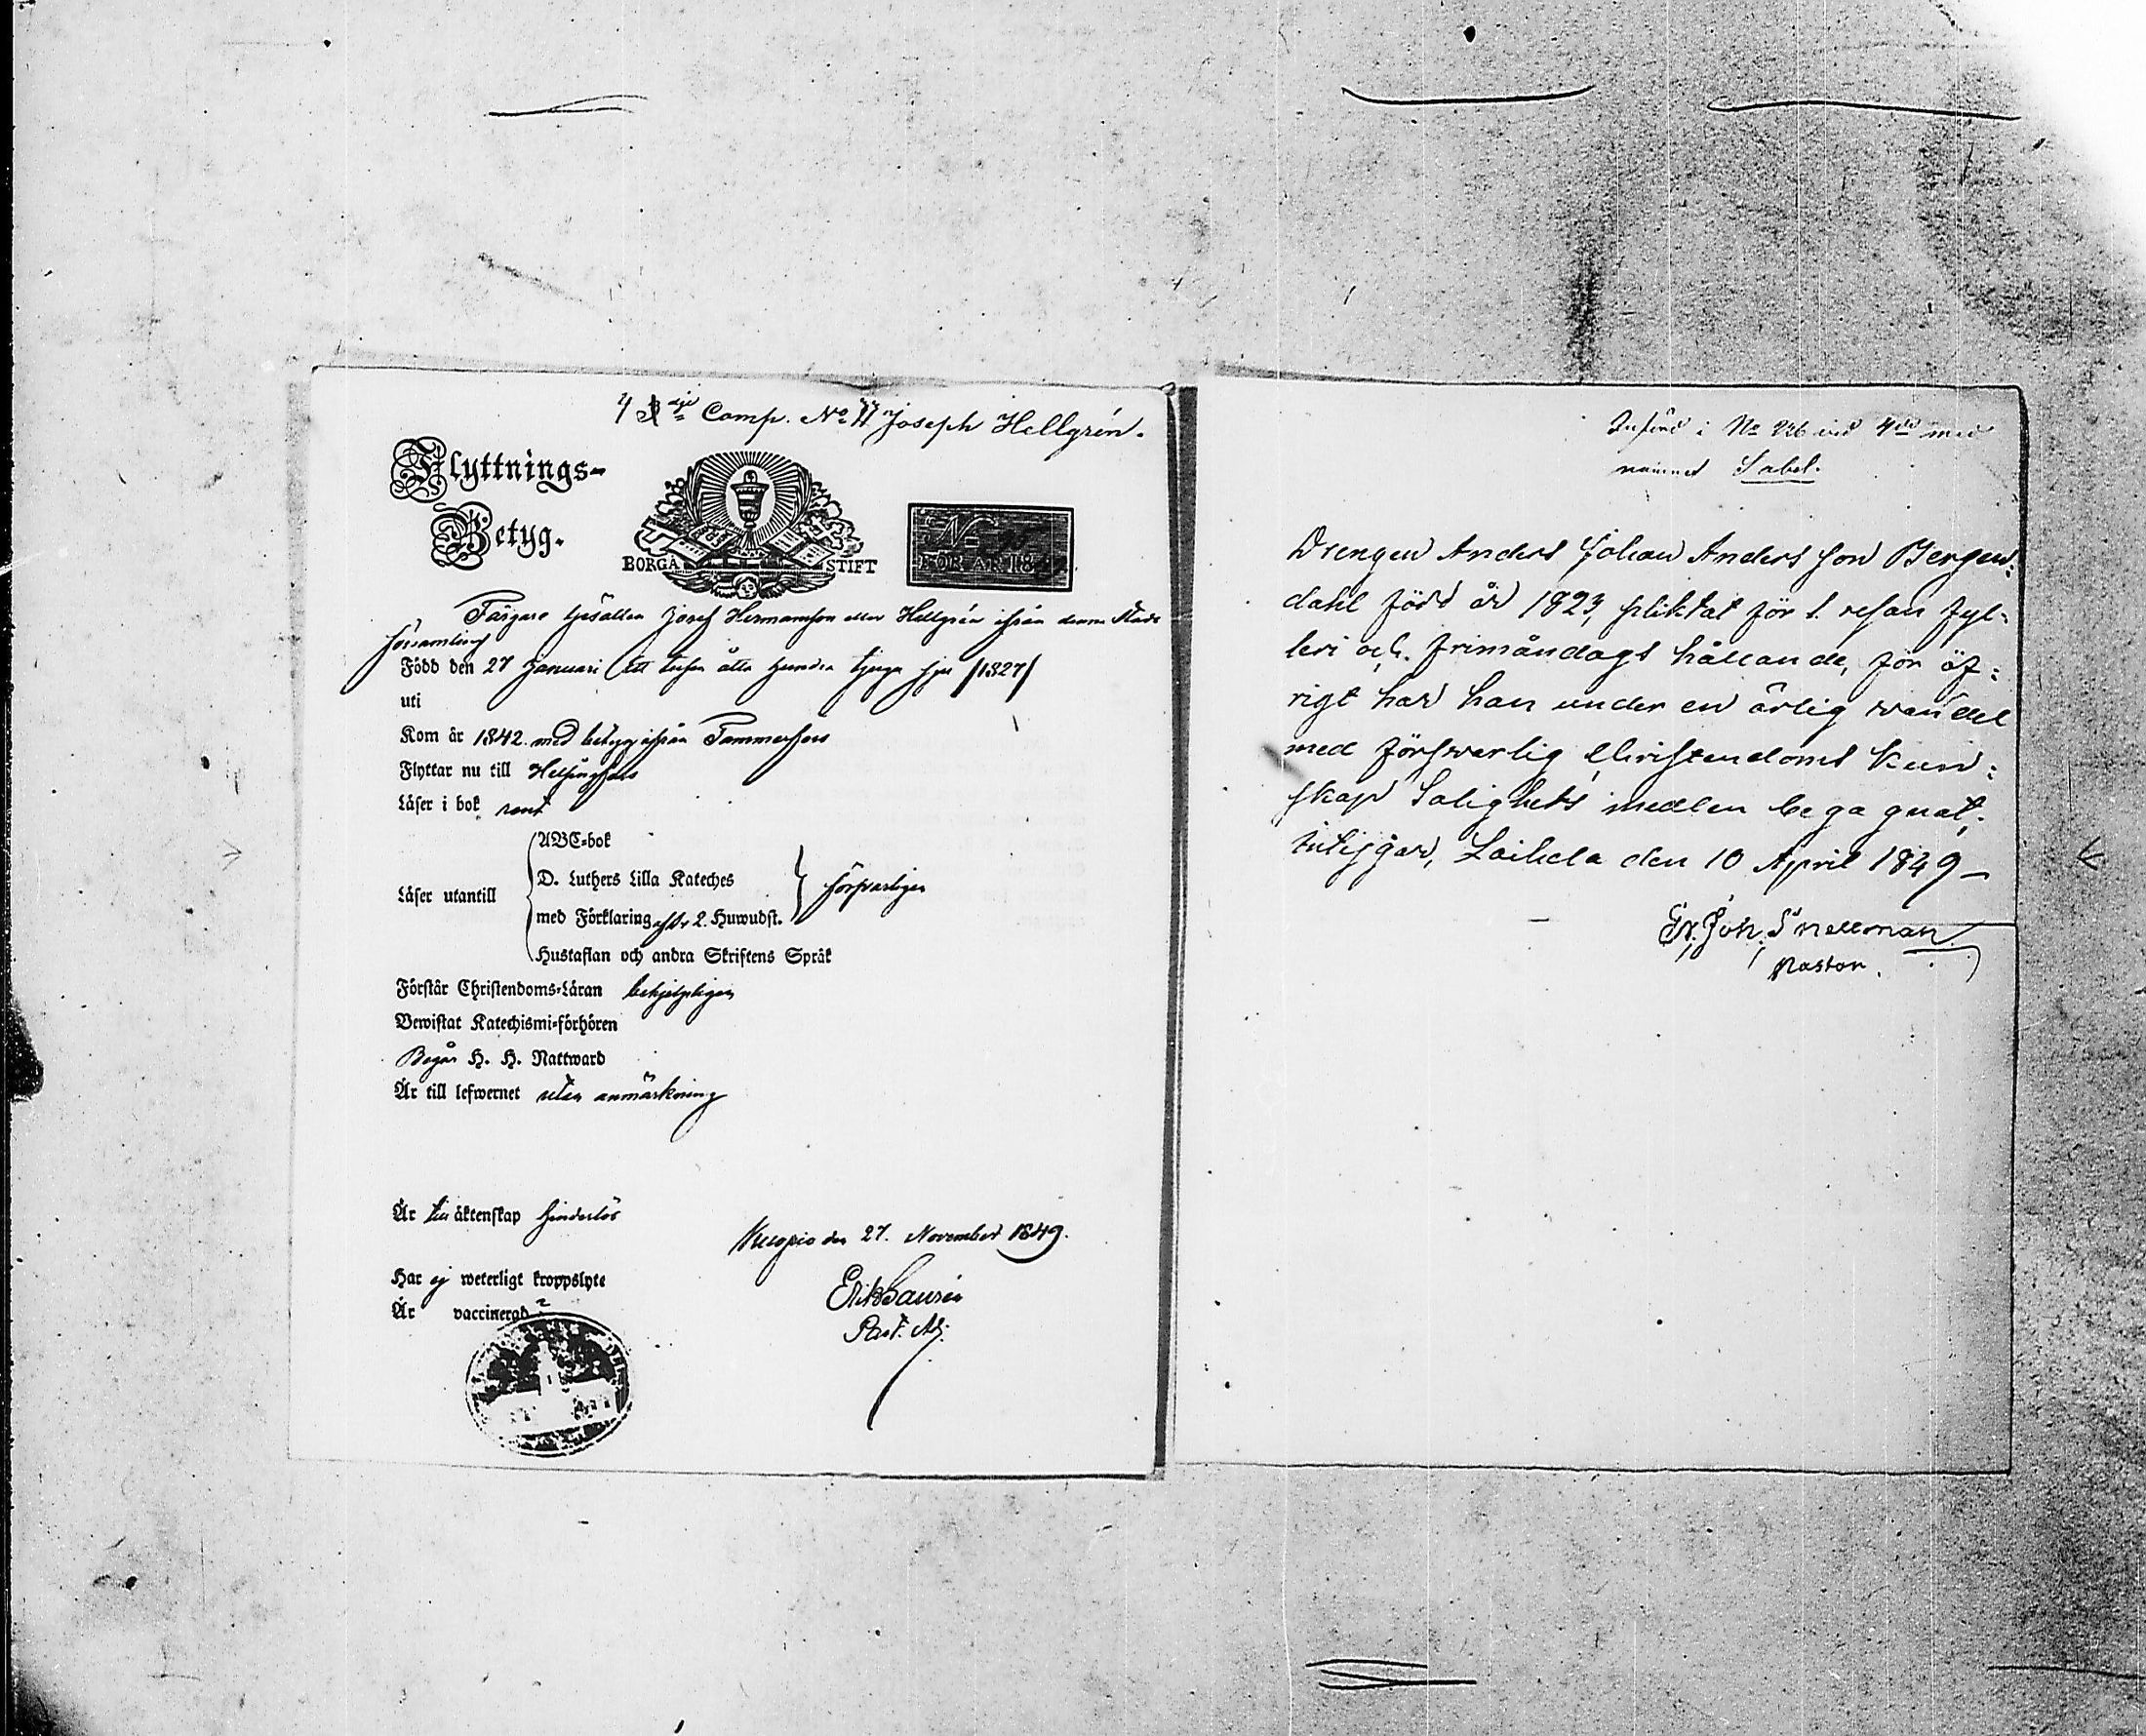 4 dje Comp. No 11 Joseph Hellgrén.
Flyttnings-
Betyg.
BORGÅ STIFT
No
FÖR ÅR 18
Färgare Gesällen Josef Hermansson eller Hellgrén ifrån denna Stads
församling
Född den 27 Januari Ett tusen åtta hundra tjugu sju /1827/
uti
Kom år 1842 med betyg ifrån Tammerfors
Flyttar nu till Helsingfors
Läser i bok rent
ABC-bok
Läser utantill
D. Luthers Lilla Kateches
med Förklaring öfver 2. Huwudst.
försvarligen
Hustaflan och andra Skriftens Språk
Förstår Christendoms-Läran behjelpligen
Bewistat Katechismi-förhören
Begår H. H. Nattward
Är till lefwernet utan anmärkning
Är till äktenskap hinderlös
Kuopio den 27. November 1849.
Har ej weterligt kroppslyte
Erik Laurén
Är vaccinerad
Past. Adj.
Införd i No 226 vid 4de med
namnet Sabel.
Drengen Anders Johan Anders son Bergen:
dahl född år 1823, pliktat för 1. resan fyl:
leri och frimåndags hållande, för öf:
rigt har han under en ärlig vandel
med förswarlig Christendoms kun:
skap Salighets medlen begagnat,
intygar, Laihela den 10 April 1849 –
Er. Joh. Snellman
Pastor.